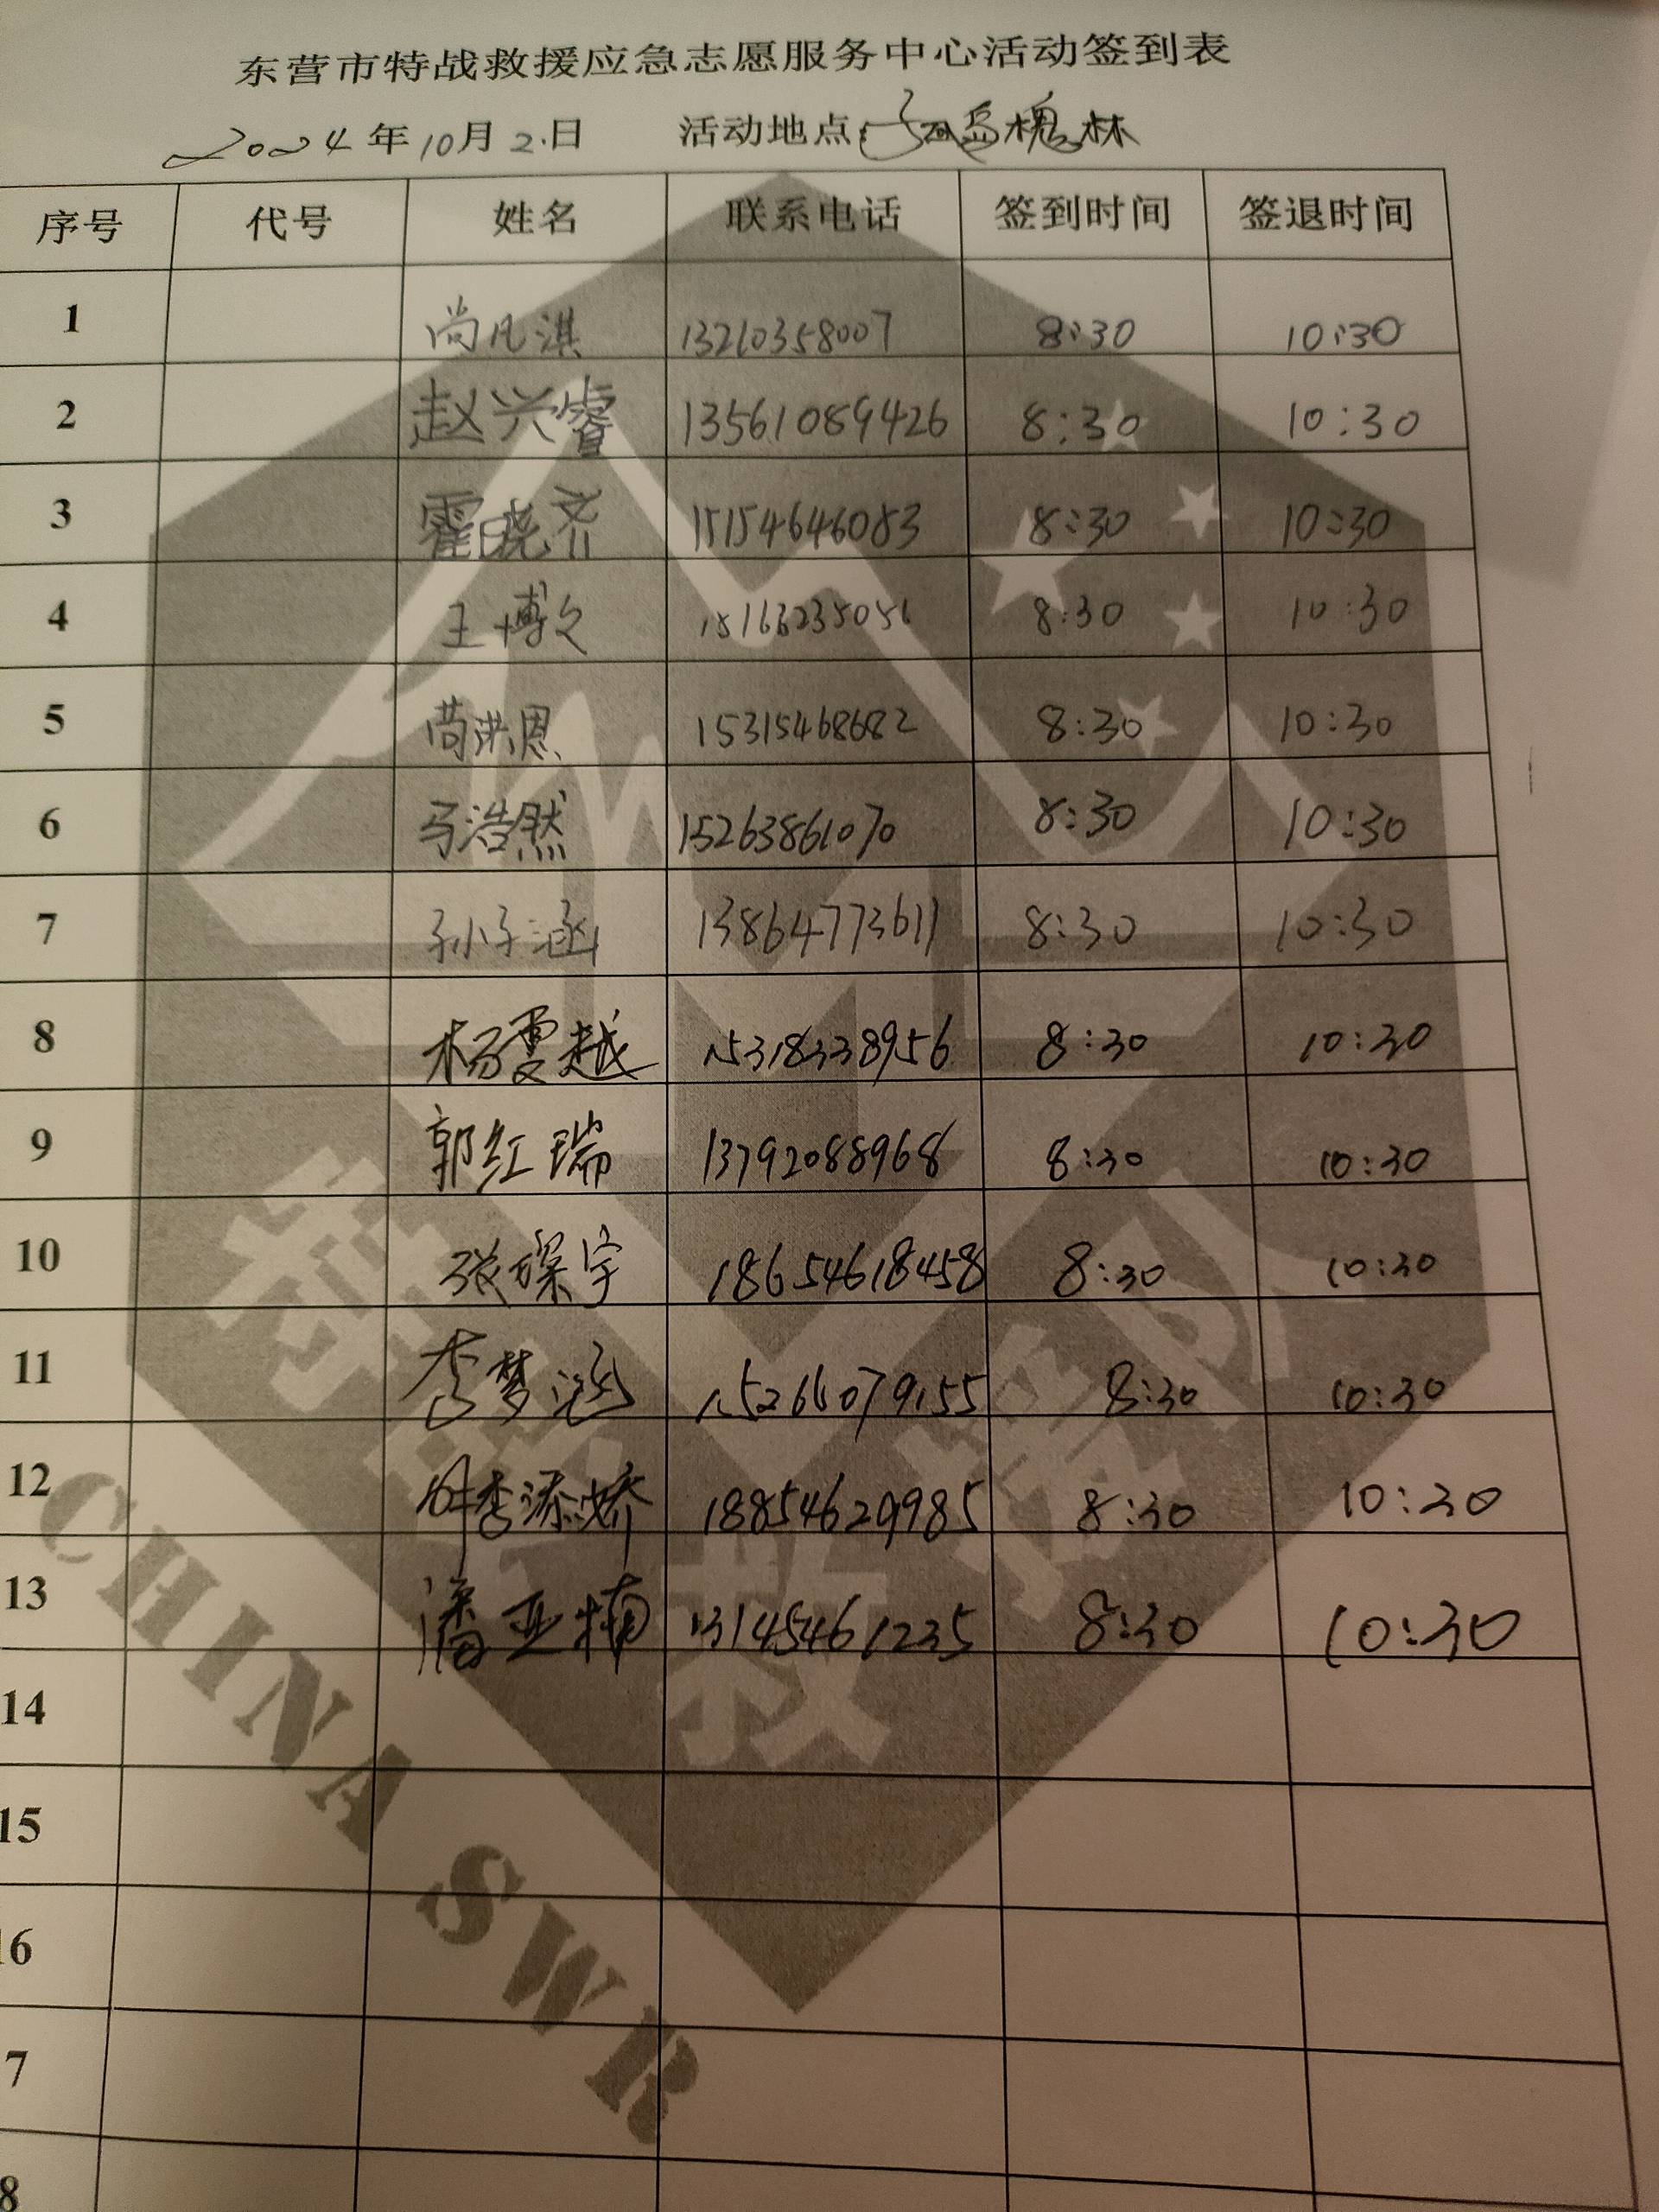 东营市特战救援应急志愿服务中心活动签到表
2024年10月2日 活动地点: 孤岛槐林
序号 代号 姓名 联系电话 签到时间 签退时间
1 尚凡淇 13210358007 8:30 10:30
2 赵兴睿 13561089426 8:30 10:30
3 霍晓齐 15154646083 8:30 10:30
4 王博文 15166235056 8:30 10:30
5 尚洪恩 15315468682 8:30 10:30
6 马浩然 15263861070 8:30 10:30
7 孙子涵 13864773611 8:30 10:30
8 杨雯越 15318338956 8:30 10:30
9 郭红瑞 13792088968 8:30 10:30
10 张琛宇 18654618458 8:30 10:30
11 李梦涵 15266079155 8:30 10:30
12 李添娇 18854629985 8:30 10:30
13 潘亚楠 13145461235 8:30 10:30
14
15
16
7
8
特战救援队
CHINA SWR